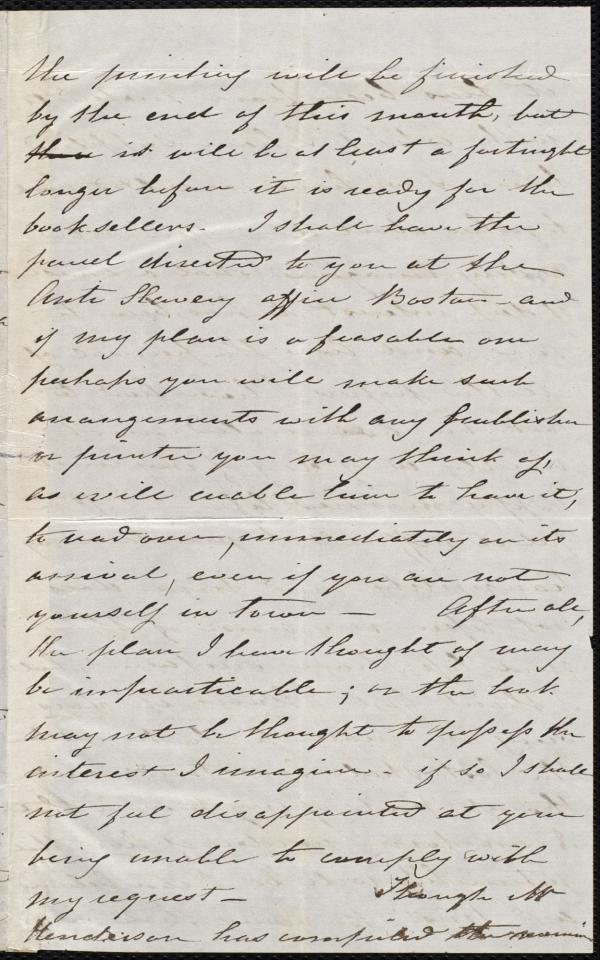 the printing will be finished
by the end of this month, but
it will be at least a fortnight
longer before it is ready for the
booksellers. I shall have the
parcel directed to you at the
Anti Slavery office Boston - and
if my plan is a feasable one
perhaps you will make such
arrangements with any publisher
or printer you may think of,
as will enable him to have it,
to read over, immediately on its
arrival, even if you are not
yourself in town — After all,
the plan I have thought of may
be impracticable; or the book
may not be thought to possess the
interest I imagine - if so I shall
not feel disappointed at your
being unable to comply with
my request — Though Mr
Henderson has compiled the